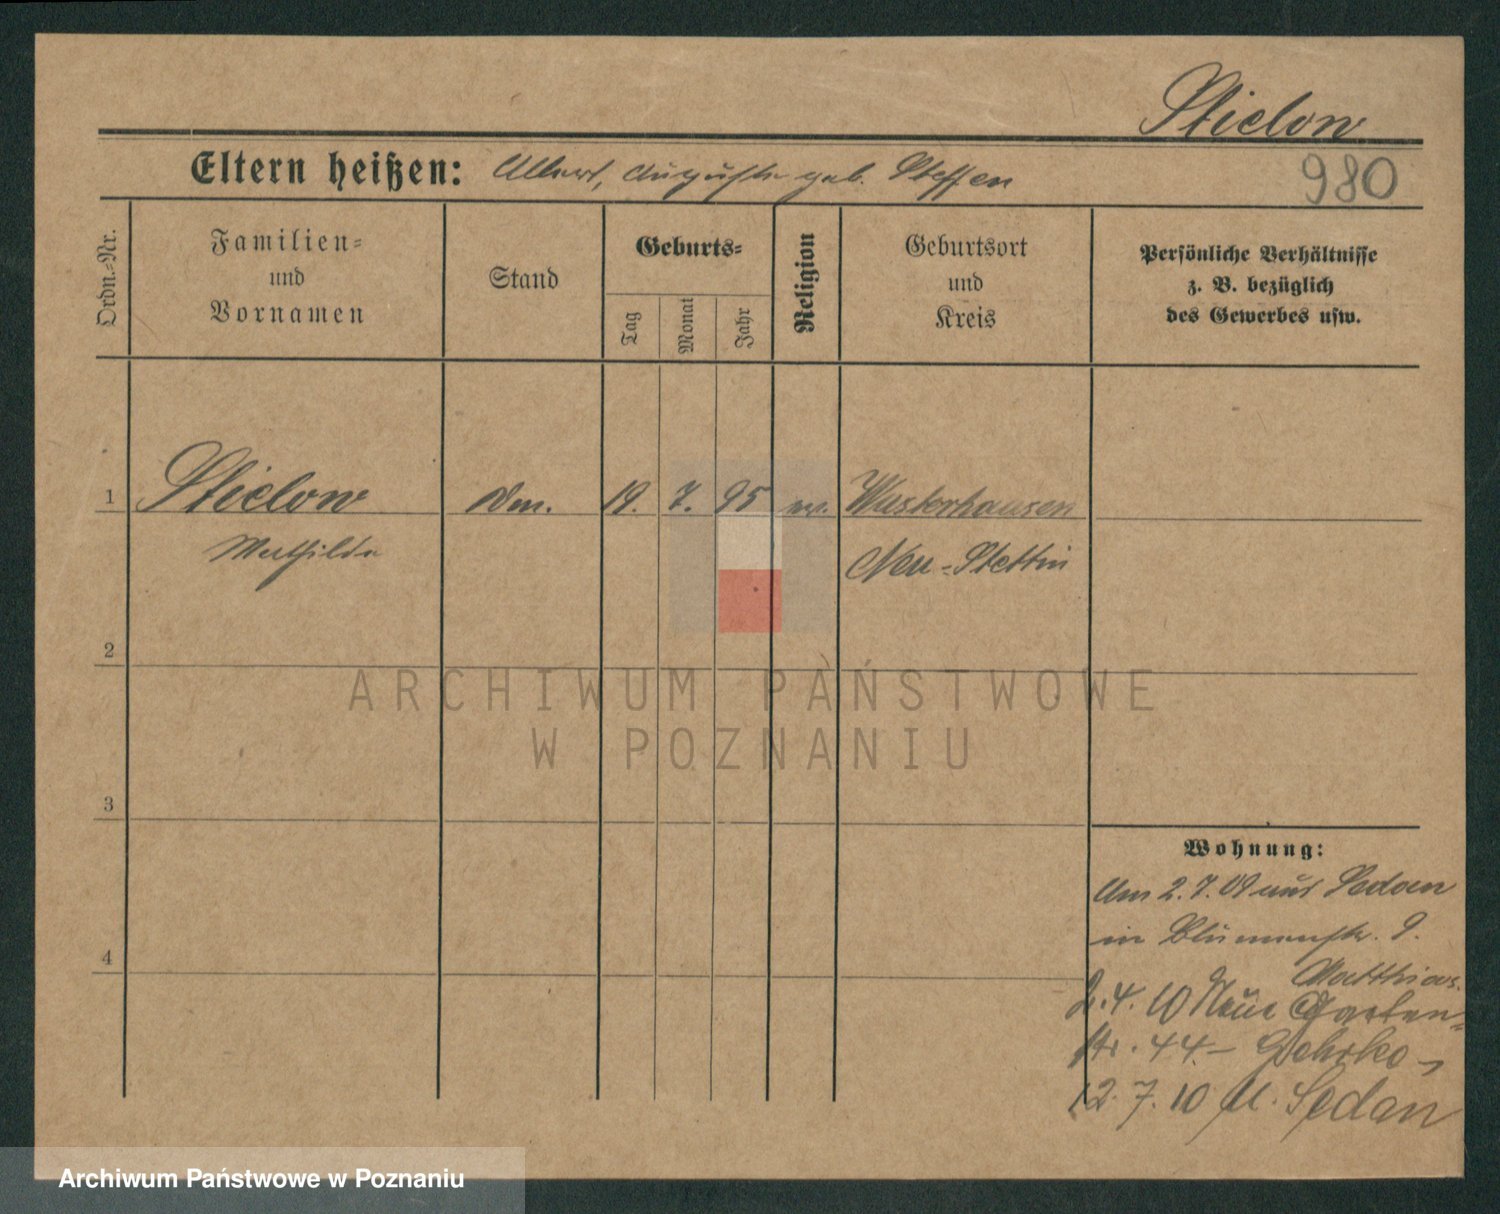 Stielow
980
Eltern heißen: Albert, Auguste geb. Steffen
Ordn.-Nr.
Familien-
und
Vornamen
Stand
Geburts-
Tag
Monat
Jahr
Religion
Geburtsort
und
Kreis
Persönliche Verhältnisse
z. B. bezüglich
des Gewerbes usw.
1 Stielow 19. 7. 95 ev. Wusterhausen
Mathilde Neu-Stettin
2
3
4
Wohnung:
Am 2.7.09 aus Sedan
in Blumenstr. 9.
Matthias.
2.4.10 Neue Garten-
str. 44 -
12.7.10 n. Sedan
ARCHIWUM PAŃSTWOWE
W POZNANIU
Archiwum Państwowe w Poznaniu